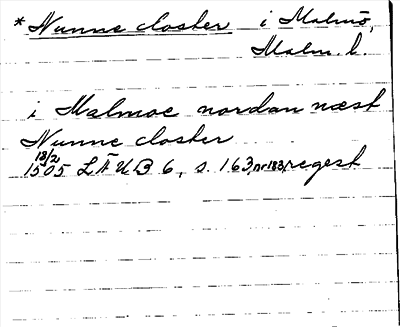 * Nunne closter i Malmö,
Malm. h.
i Malmoe nordan næst
Nunne closter
18/2
1505 LÄUB 6, s. 163, nr 183, regest